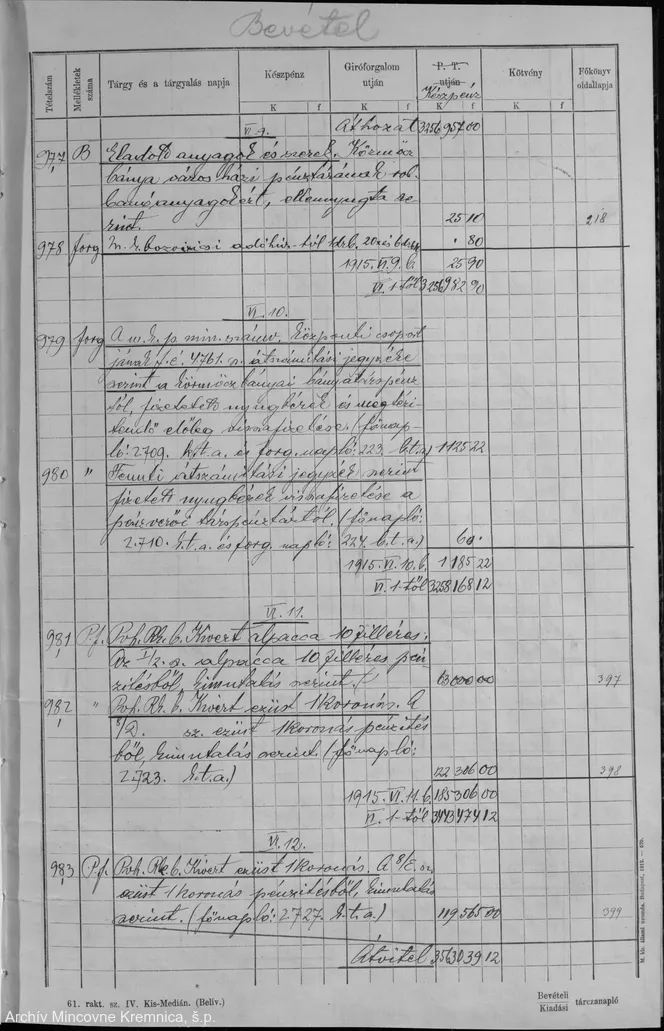 Bevétel
Tételszám
Mellékletek száma
Tárgy és a tárgyalás napja
Készpénz
Giróforgalom útján
P. T. útján
Készpénz
Kötvény
Főkönyv oldallapja
K f K f K f K f
VI. 9. Áthozat 3256957 00
977 B Eladott anyagok és szerek. Körmöcz
bánya város házi pénztárának rob
banóanyagokért, ellennyugta sze
rint. 25 10 218
978 forg M. k. adóhiv.-tól 1 drb. 20 és 6 drb
80
1915. VI. 9. b. 25 90
VI. 1-től 3256982 90
VI. 10.
979 forg A m. k. p. min. számv. központi csoport
jának f. é. 4761. sz. átszámítási jegyzéke
szerint a körmöczbányai bányatárspénz
tól, fizetett nyugbérek és megtéri
tendő előleg visszafizetése. (főnap
ló: 2709. k. t. a. és forg. napló: 223. b. t. a.) 1125 22
980 " Fennti átszámítási jegyzék szerint
fizetett nyugbérek visszafizetése a
pénzverői társpénztártól. (főnapló:
2710. k. t. a. és forg. napló: 224. b. t. a.) 60.
1915. VI. 10. b. 1185 22
VI. 1-től 3258168 12
VI. 11.
981 P.f. Poh. Rb. b. Kivert alpacca 10 filléres.
Az I/2. sz. alpacca 10 filléres pén
zitésből, kimutatás szerint. 63000 00 397
982 " Poh. Rb. b. Kivert ezüst 1 koronás. A
8/D. sz. ezüst 1 koronás pénzités
ből, kimutatás szerint. (főnapló:
2723. k. t. a.) 122306 00 398
1915. VI. 11. b. 185306 00
VI. 1-től 3443474 12
VI. 12.
983 P.f. Poh. Rb. b. Kivert ezüst 1 koronás. A 8/E. sz.
ezüst 1 koronás pénzitésből, kimutatás
szerint. (főnapló: 2727. k. t. a.) 119565 00 399
Átvitel 3563039 12
61. rakt. sz. IV. Kis-Medián. (Beliv.)
Bevételi
Kiadási tárczanapló
M. kir. állami nyomda. Budapest, 1912. — 670.
Archív Mincovne Kremnica, š.p.